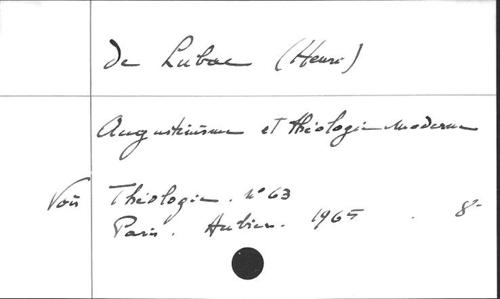 de Lubac (Henri)
Augustinisme et théologie moderne
Voir Théologie. n° 63
Paris. Aubier. 1965. 8°